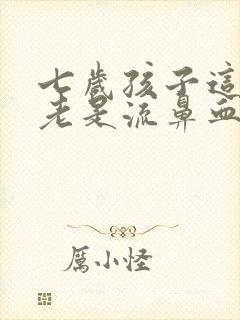 七歲孩子這
老是流鼻血
厲小怪